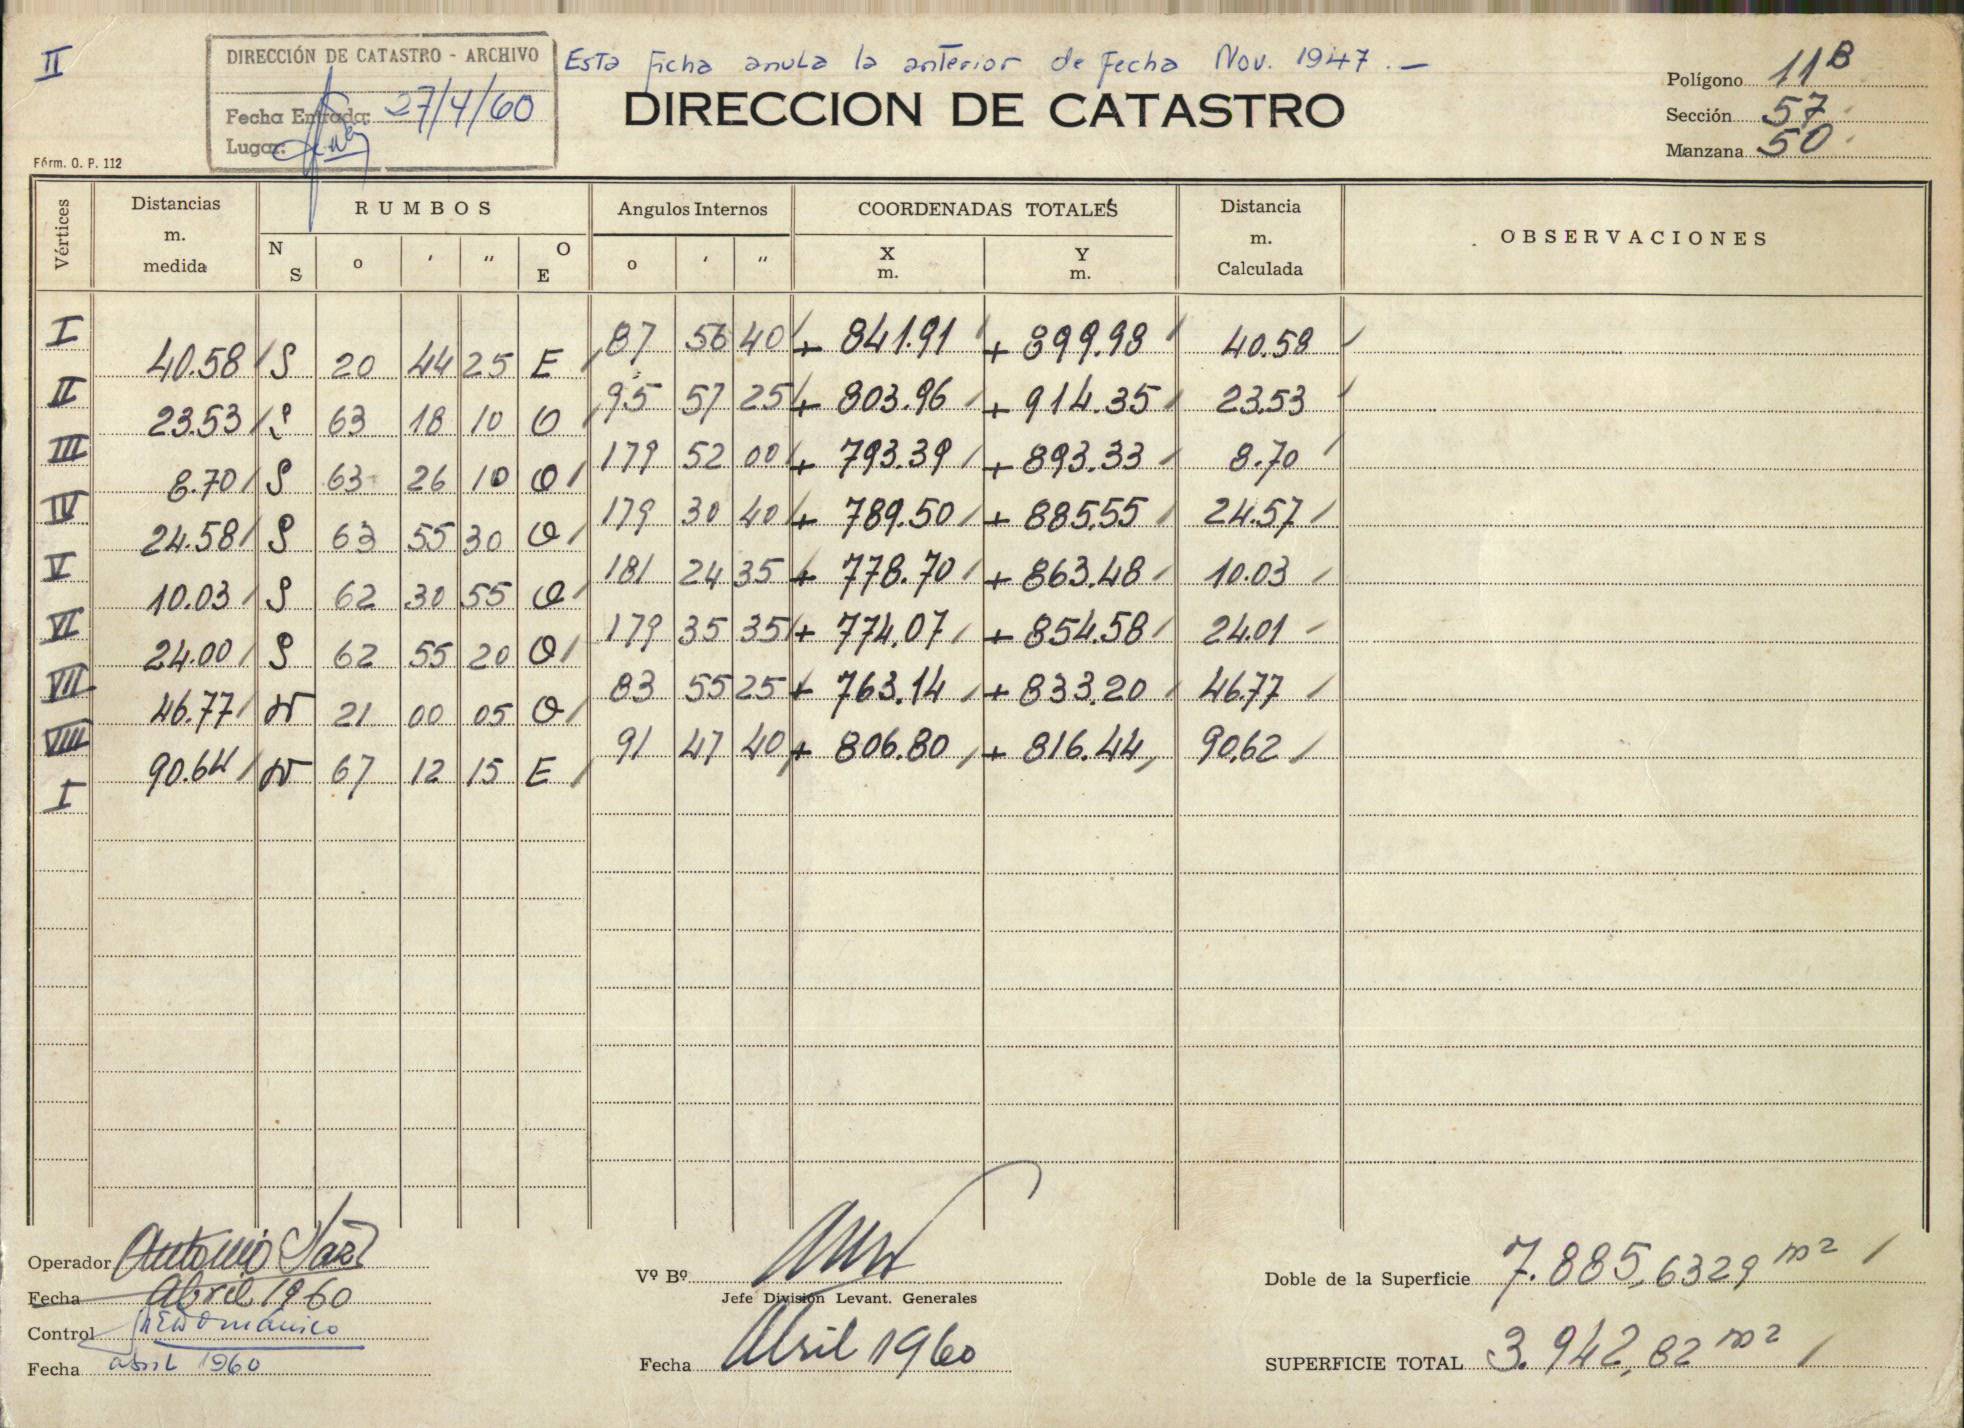 II
DIRECCIÓN DE CATASTRO - ARCHIVO
Fecha Entrada: 27/4/60
Lugar:
Esta Ficha anula la anterior de Fecha Nov. 1947.—
DIRECCION DE CATASTRO
Polígono 11B
Sección 57
Manzana 50
Fórm. O. P. 112
Vértices
Distancias m. medida
RUMBOS
N S o ′ ″ O E
Angulos Internos
o ′ ″
COORDENADAS TOTALES
X m. Y m.
Distancia m. Calculada
OBSERVACIONES
I 87 56 40 + 841.91 + 899.98 40.58
40.58 S 20 44 25 E
II 95 57 25 + 803.96 + 914.35 23.53
23.53 S 63 18 10 O
III 179 52 00 + 793.39 + 893.33 8.70
8.70 S 63 26 10 O
IV 179 30 40 + 789.50 + 885.55 24.57
24.58 S 63 55 30 O
V 181 24 35 + 778.70 + 863.48 10.03
10.03 S 62 30 55 O
VI 179 35 35 + 774.07 + 854.58 24.01
24.00 S 62 55 20 O
VII 83 55 25 + 763.14 + 833.20 46.77
46.77 N 21 00 05 O
VIII 91 47 40 + 806.80 + 816.44 90.62
90.64 N 67 12 15 E
I
Operador Antonio
Fecha Abril 1960
Control
Fecha abril 1960
Vº Bº
Jefe División Levant. Generales
Fecha Abril 1960
Doble de la Superficie 7.885,6329 m2
SUPERFICIE TOTAL 3.942,82 m2